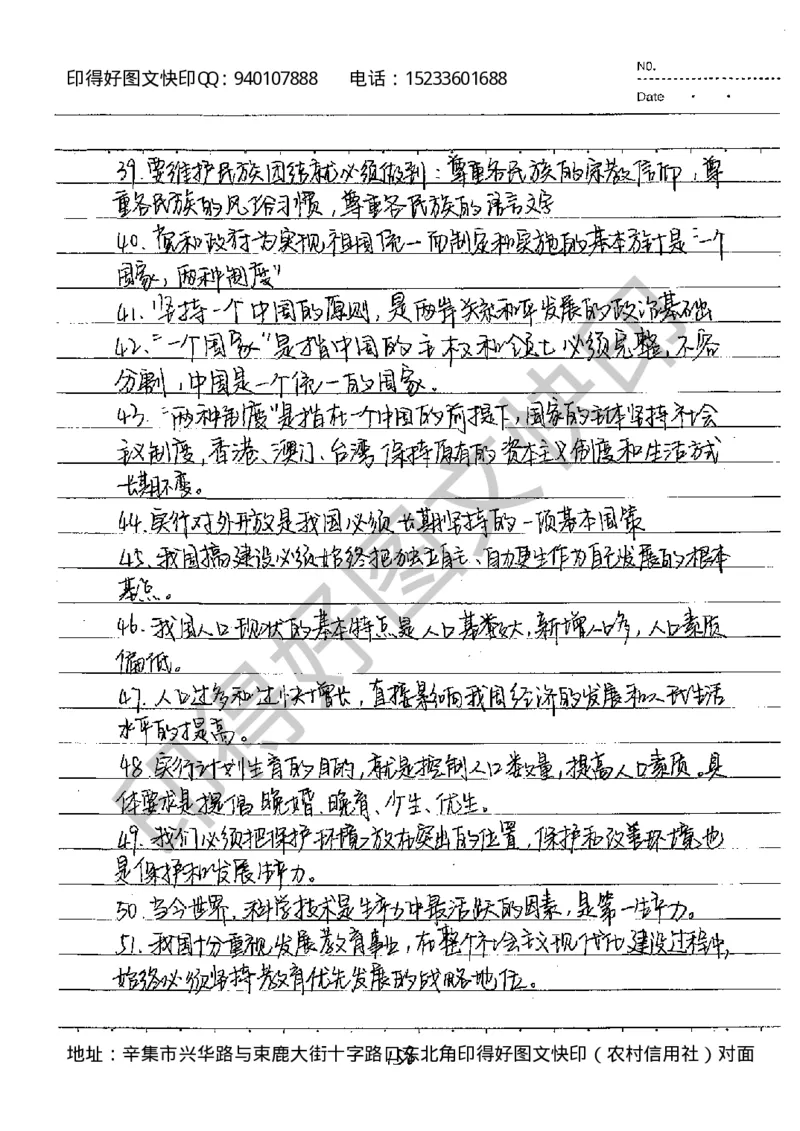 印得好图文快印QQ：940107888 电话：15233601688
NO.
Date
39.要维护民族团结就必须做到：尊重各民族的宗教信仰，尊
重各民族的风俗习惯，尊重各民族的语言文字
40.党和政府为实现祖国统一而制定和实施的基本方针是"一个
国家，两种制度"
41.坚持一个中国的原则，是两岸关系和平发展的政治基础
42."一个国家"是指中国的主权和领土必须完整，不容
分割，中国是一个统一的国家。
43."两种制度"是指在一个中国的前提下，国家的主体坚持社会
主义制度，香港、澳门、台湾保持原有的资本主义制度和生活方式
长期不变。
44.实行对外开放是我国必须长期坚持的一项基本国策
45.我国搞建设必须始终把独立自主、自力更生作为自己发展的根本
基点。
46.我国人口现状的基本特点是人口基数大，新增人口多，人口素质
偏低。
47.人口过多和过快增长，直接影响我国经济的发展和人民生活
水平的提高。
48.实行计划生育的目的，就是控制人口数量，提高人口素质。具
体要求是提倡晚婚、晚育、少生、优生。
49.我们必须把保护环境放在突出的位置，保护和改善环境也
是保护和发展生产力。
50.当今世界，科学技术是生产力中最活跃的因素，是第一生产力。
51.我国十分重视发展教育事业，在整个社会主义现代化建设过程中，
始终必须坚持教育优先发展的战略地位。
地址：辛集市兴华路与束鹿大街十字路口东北角印得好图文快印（农村信用社）对面
印得好图文快印